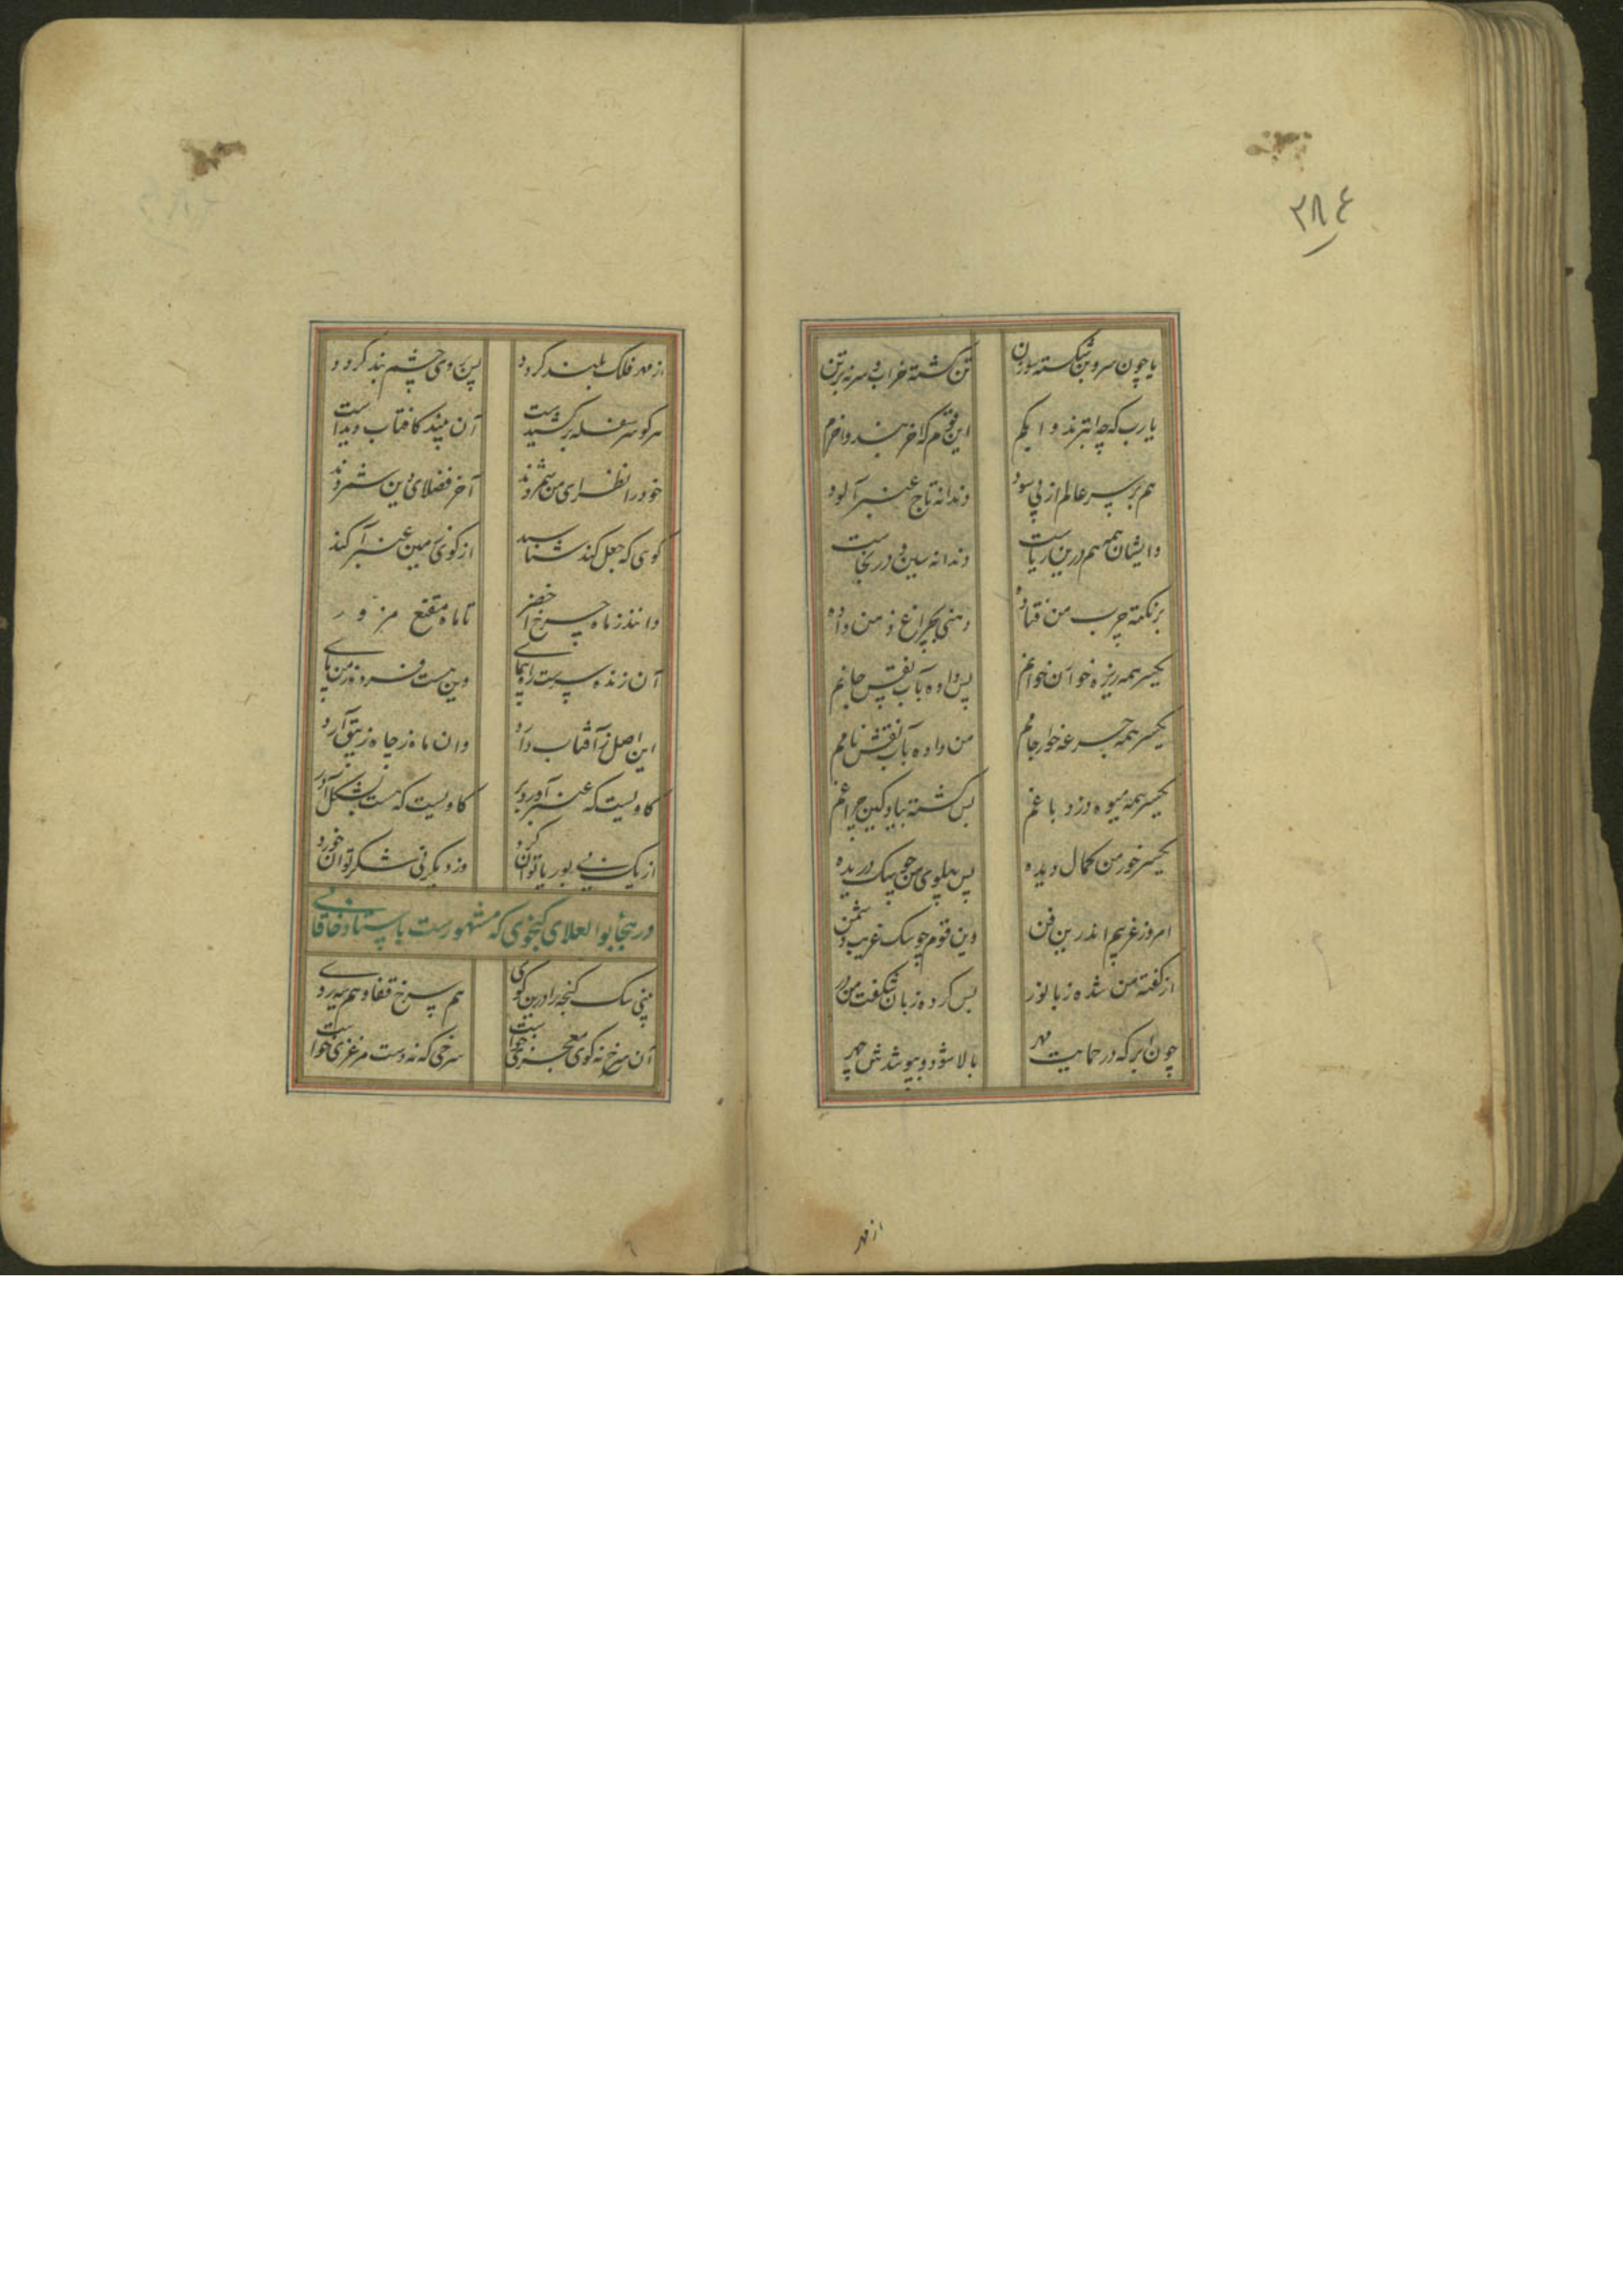 ۲۸۴
یا چون سر و بن شکسته سوزن تن گشته خراب و سر نه بر تن
یارب که چه ابترند و ابکم این قوم کز اخرهند و اخرم
هم بر سر عالم از پی سود دندانه تاج عنبر آلود
وایشان همه هم درین ریاست دندانه سین و در نجاست
بر نکته چرب من فتاده دهنی بچراغ ذهن من داده
یکسر همه ریزه خوان خوانم پس داده بآب نقش جانم
یکسر همه جرعه خوار جامم من داده بآب نقش نامم
یکسر همه میوه دزد باغم پس کشته بباد کین چراغم
یکسر خور من کمال دیده پس پهلوی من چو پیک دریده
امروز غریبم اندرین فن وین قوم چو سک غریب دشمن
از گفته من شده زبان‌ور پس کرده زبان شکفت من در
چون ابر که در حمایت مهر بالا شود و بپوشدش چهر
از مهر
از مهر فلک بلند کردد پس بر وی چشم بند کردد
هر کو سر سفله بر کشیدست آن بیند کافتاب دیدست
خود را نظرای من شمردند آخر فضلای دین ستردند
کوی که جعل کند شناسد از کوی زمین عنبر آکند
دانند ز ماه چرخ اخضر تا ماه مقنع مزور
آن زنده پرست راه پیمای وین هست فسرده زمین پای
این اصل ز آفتاب دارد وان ماه ز چاه زیبق آرد
کاویست که عنبر آورد بر کاویست که هست شکل آذر
از یک نی بوریا توان کرد وز دیگر نی شکر توان خورد
در هجا بوالعلای کنجوی که مشهورست باستاد خاقانی
بینی سک کنجه را درین کوی هم سرخ قفا و هم سیه روی
آن سرخ نه کوی معجزی خواست سرخی که نه دست مرغزی خواست